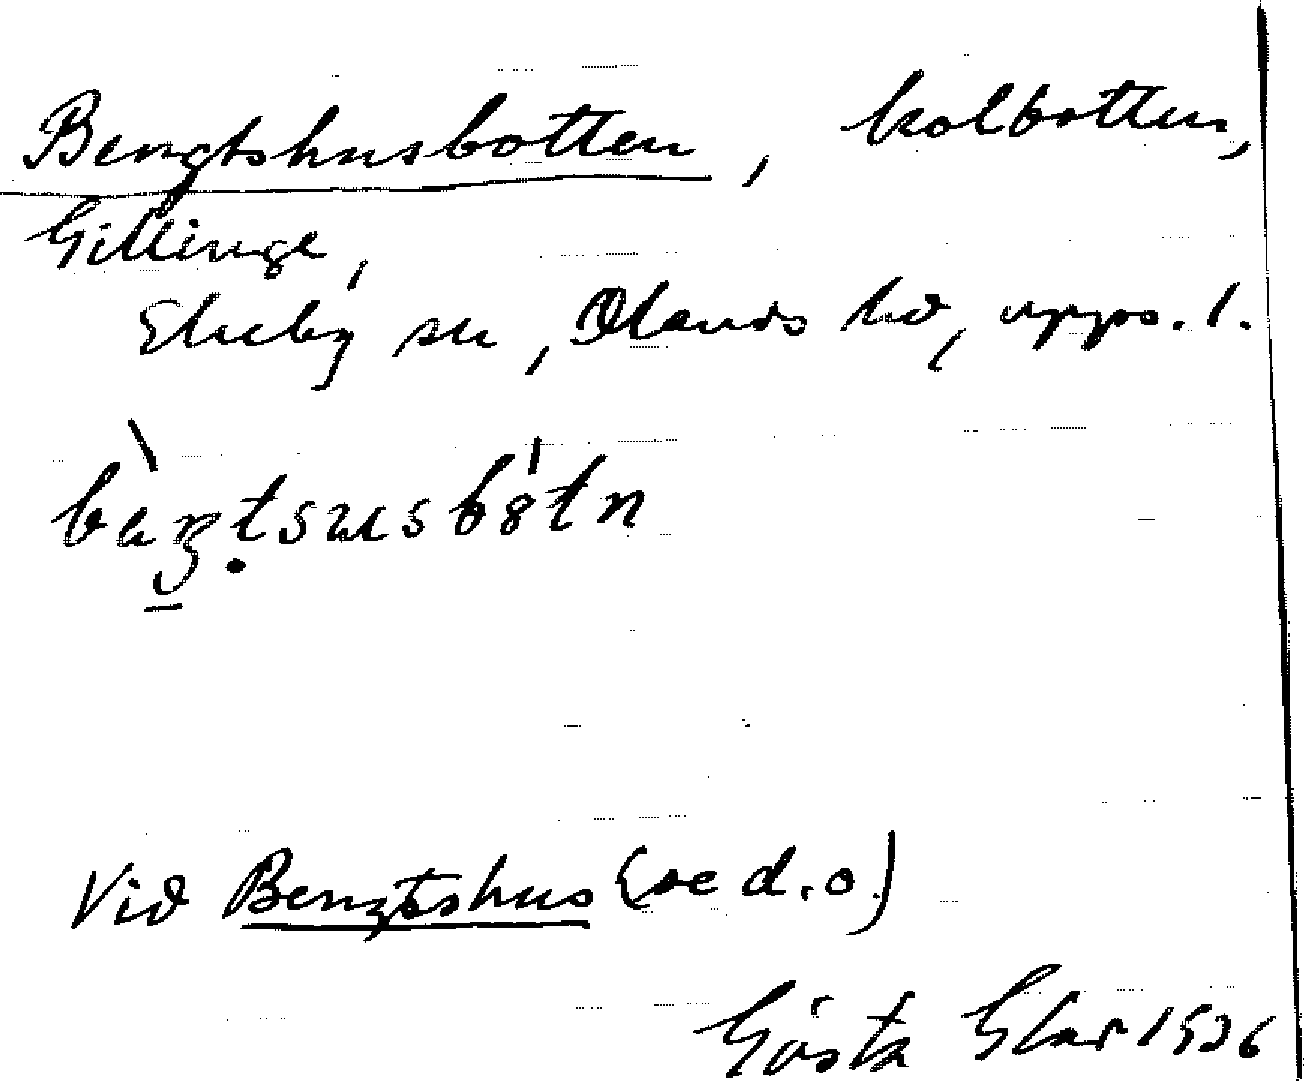 Bengtshusbotten, kolbotten,
Gillinge,
Ekeby sn, Olands hd, Upps. l.
Vid Bengtshus (se d.o.)
Gösta Elar 1936